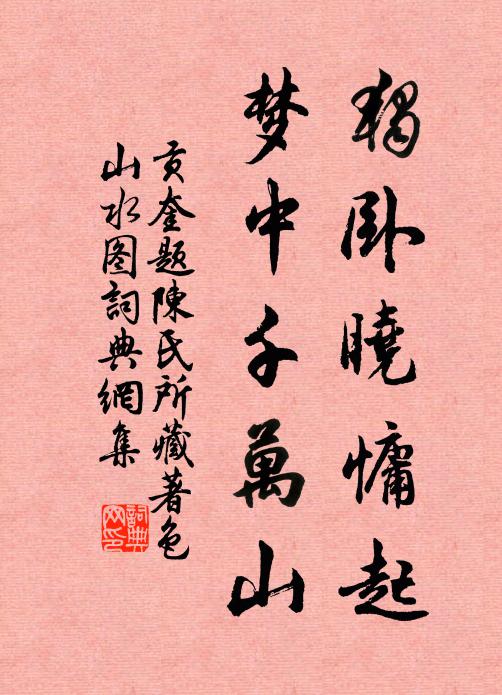 獨卧曉慵起
梦中千萬山
贡奎题陳氏所藏著色
山水图詞典網集
詞典网印